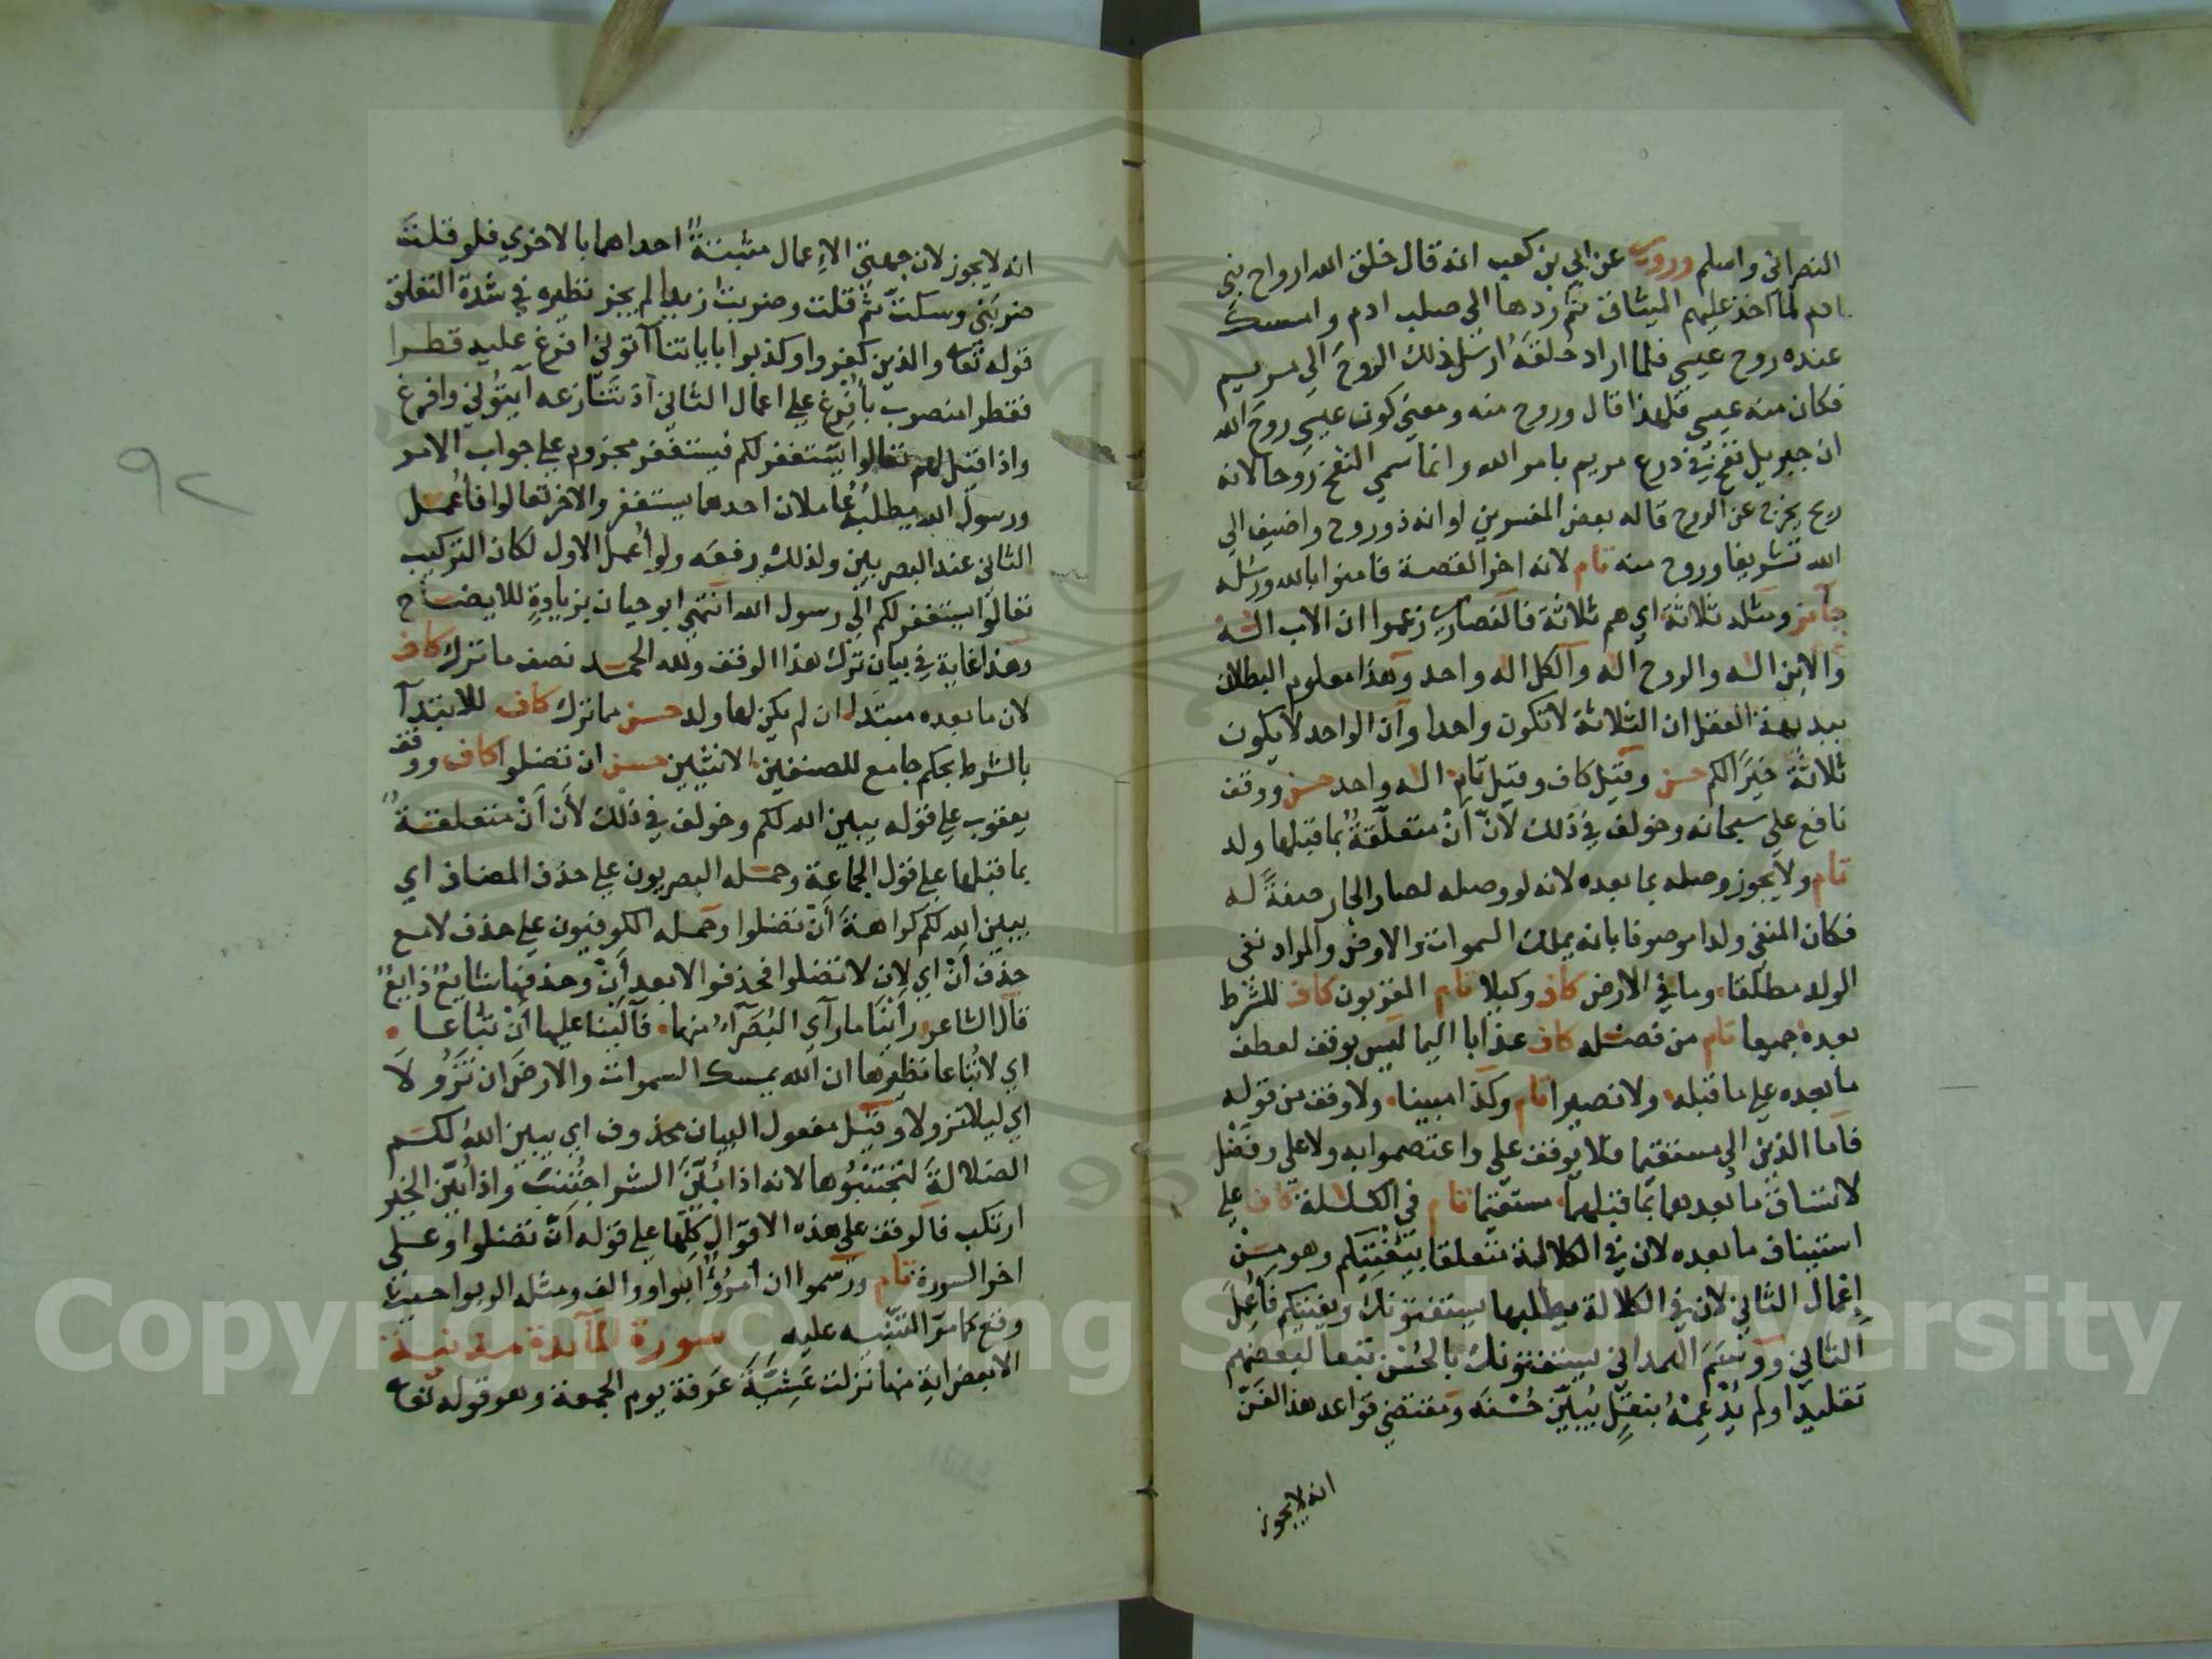 النصراني واسلم وروي عن ابي بن كعب انه قال خلق الله ارواح بني
ادم لما اخذ عليهم الميثاق ثم ردها الي صلب ادم وامسك
عنده روح عيسي فلما اراد خلقه ارسل ذلك الروح الي مريم
فكان منه عيسي فلهذا قال وروح منه ومعني كون عيسي روح الله
ان جبريل نفخ في درع مريم بامر الله وانما سمي النفخ روحا لانه
ريح يخرج عن الروح قاله بعض المفسرين او انه ذو روح واضيف الي
الله تشريفا وروح منه تام لانه اخر القصة فامنوا بالله ورسله
جائز ومثله ثلاثة اي هم ثلاثة فالنصاري زعموا ان الاب اله
والابن اله والروح اله والكل اله واحد وهذا معلوم البطلان
ببديهة العقل ان الثلاثة لا تكون واحدا وان الواحد لا يكون
ثلاثة خيرا لكم حسن وقيل كاف وقيل تام اله واحد حسن ووقف
نافع علي سبحانه وخولف في ذلك لان أن متعلقة بما قبلها ولد
تام ولا يجوز وصله بما بعده لانه لو وصله لصار الجار صفة له
فكان المنفي ولدا موصوفا بانه يملك السموات والارض والمراد نفي
الولد مطلقا وما في الارض كاف وكيلا تام المقربون كاف للشرط
بعده جميعا تام من فضله كاف عذابا اليما ليس بوقف لعطف
ما بعده علي ما قبله ولا نصيرا تام وكذا مبينا ولا وقف من قوله
فاما الذين الي مستقيما فلا يوقف علي واعتصموا به ولا علي وفضل
لاتساق ما بعدهما بما قبلهما مستقيما تام في الكلالة كاف علي
استيناف ما بعده لان في الكلالة متعلقا بيفتيكم وهو من
إعمال الثاني لان في الكلالة يطلبها يستفتونك ويفتيكم فأعمل
الثاني ووسم الهمداني يستفتونك بالحسن تبعا لبعضهم
تقليدا ولم يدعمه بنقل يبين حسنه ومقتضي قواعد هذا الفن
انه لا يجوز
انه لا يجوز لان جهتي الإعمال مثبتة احداهما بالاخري فلو قلت
ضربني وسكت ثم قلت وضربت زيدا لم يجز نظيره في شدة التعلق
قوله تعا والذين كفروا وكذبوا باياتنا آتوني افرغ عليه قطرا
فقطرا منصوب بأفرغ علي اعمال الثاني اذ تنازعه آتوني وافرغ
واذا قيل لهم تعالوا يستغفر لكم فيستغفر مجزوم علي جواب الامر
ورسول الله يطلبه عاملان احدهما يستغفر والاخر تعالوا فأعمل
الثاني عند البصريين ولذلك رفعه ولو أعمل الاول لكان التركيب
تعالوا يستغفر لكم الي رسول الله انتهي ابو حيان بزيادة للايضاح
وهذا غاية في بيان ترك هذا الوقف ولله الحمد نصف ما ترك كاف
لان ما بعده مبتدا ان لم يكن لها ولد حسن مما ترك كاف للابتدآ
بالشرط بحكم جامع للصنفين الانثيين حسن ان تضلوا كاف ووقف
يعقوب علي قوله يبين الله لكم وخولف في ذلك لأن أن متعلقة
بما قبلها علي قول الجماعة وحمله البصريون علي حذف المضاف اي
يبين الله لكم كراهة أن تضلوا وحمله الكوفيون علي حذف لا مع
حذف أن اي لان لا تضلوا فحذفوا لا بعد أن وحذفها شايع ذايع
قال الشاعر رأينا ما رآي البصرآء منها فآلينا عليها أن تباعا
اي لا تباعا نظيرها ان الله يمسك السموات والارض ان تزولا
اي ليلا تزولا وقيل مفعول البيان محذوف اي يبين الله لكم
الضلالة لتجتنبوها لانه اذا بين الشر اجتنب واذا بين الخير
ارتكب فالوقف علي هذه الاقوال كلها علي قوله أن تضلوا وعلي
اخر السورة تام ورسموا ان امرؤا بواو والف ومثله الربوا حيث
وقع كما مر التنبيه عليه سورة المآئدة مدنية
الا بعض اية منها نزلت عشية عرفة يوم الجمعة وهو قوله تعا
٩٢
Copyright © King Saud University